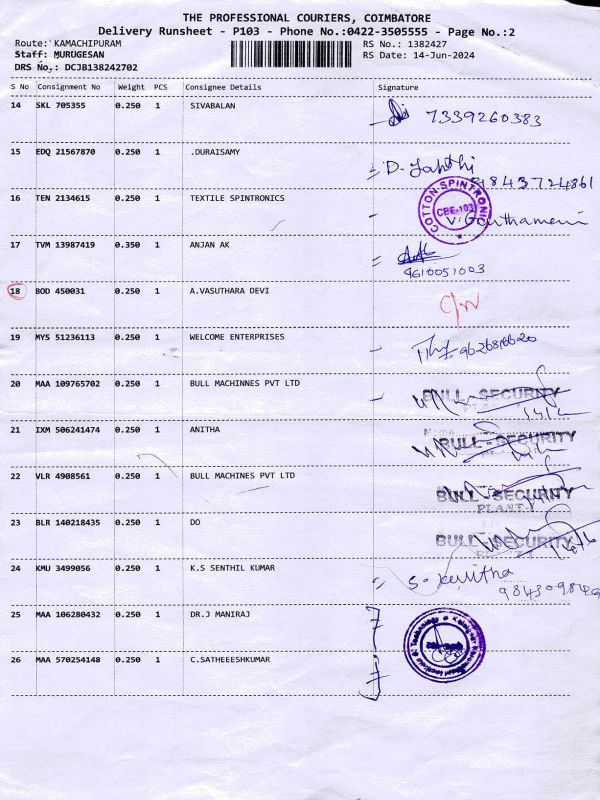 THE PROFESSIONAL COURIERS, COIMBATORE
Delivery Runsheet - P103 - Phone No.:0422-3505555 - Page No.:2
Route: KAMACHIPURAM RS No.: 1382427
Staff: MURUGESAN RS Date: 14-Jun-2024
DRS No.: DCJB138242702
S No Consignment No Weight PCS Consignee Details Signature
14 SKL 705355 0.250 1 SIVABALAN 7339260383
15 EDQ 21567870 0.250 1 .DURAISAMY D.
16 TEN 2134615 0.250 1 TEXTILE SPINTRONICS COTTON SPINTRONIC CBE-103 V.
17 TVM 13987419 0.350 1 ANJAN AK 9610051003
18 BOD 450031 0.250 1 A.VASUTHARA DEVI
19 MYS 51236113 0.250 1 WELCOME ENTERPRISES
20 MAA 109765702 0.250 1 BULL MACHINNES PVT LTD BULL - SECURITY
21 IXM 506241474 0.250 1 ANITHA BULL - SECURITY
22 VLR 4908561 0.250 1 BULL MACHINES PVT LTD BULL - SECURITY
PLANT-I
23 BLR 140218435 0.250 1 DO BULL - SECURITY
24 KMU 3499056 0.250 1 K.S SENTHIL KUMAR S.
25 MAA 106280432 0.250 1 DR.J MANIRAJ
26 MAA 570254148 0.250 1 C.SATHEEESHKUMAR